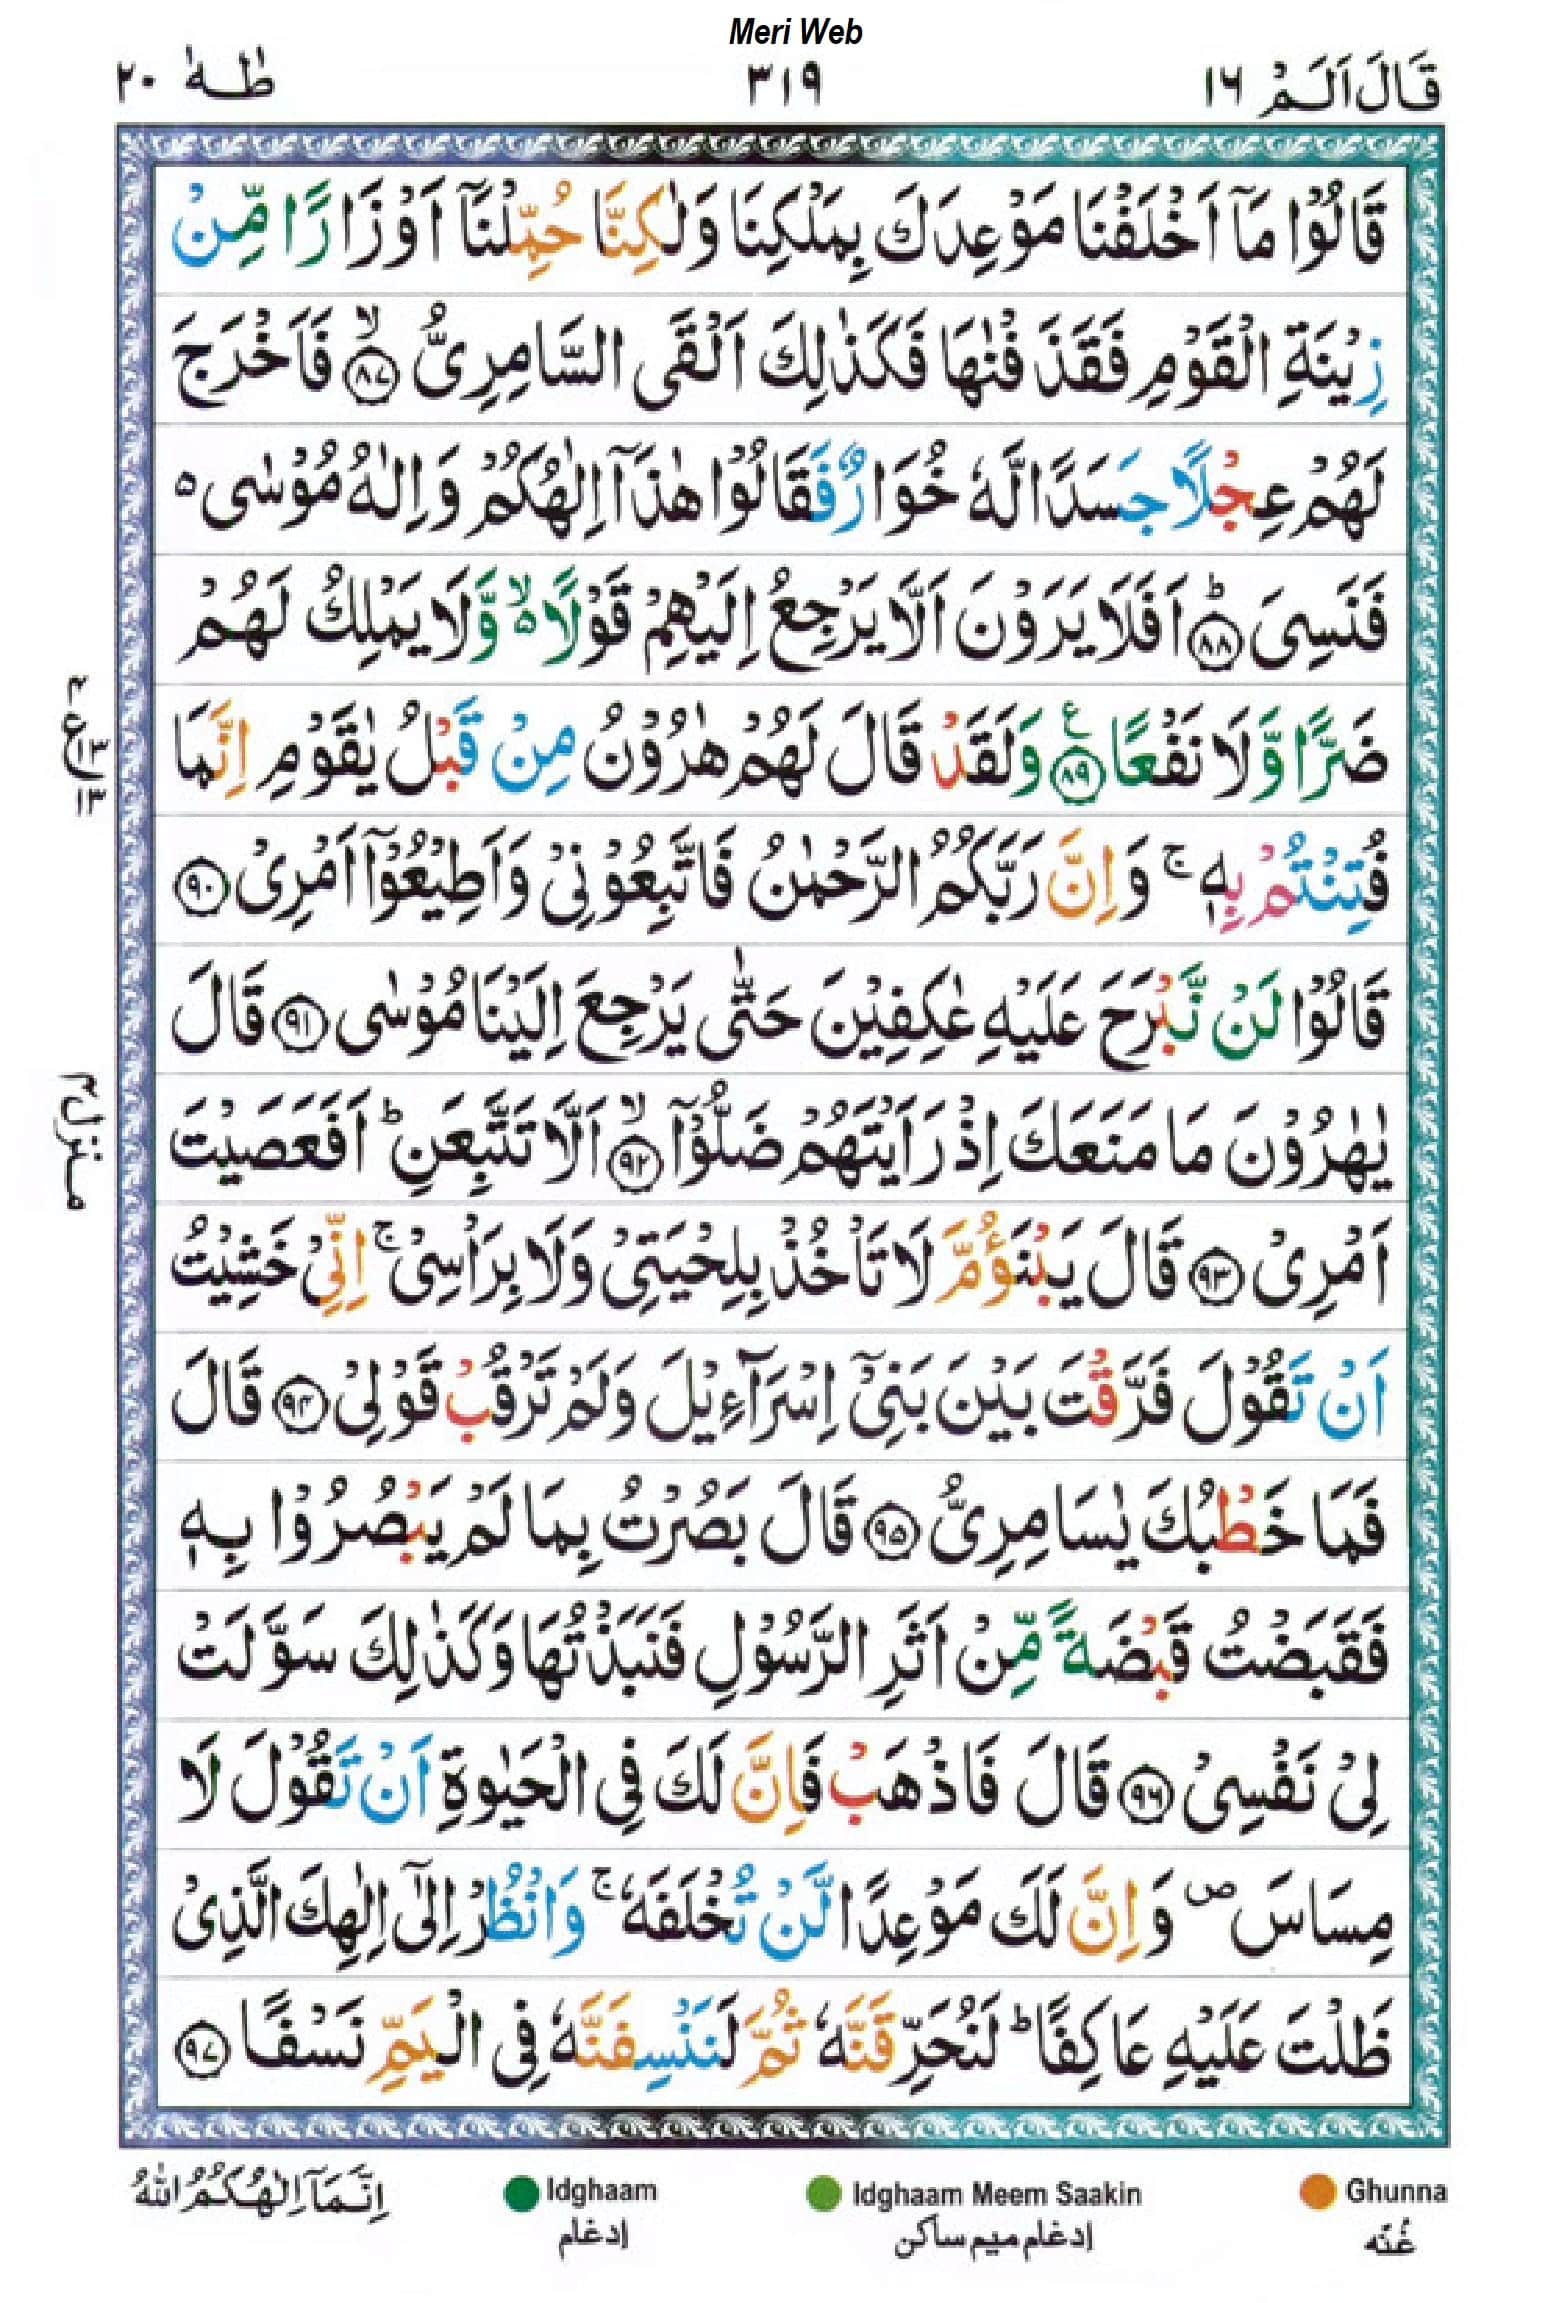 Meri Web
قَالَ اَلَمْ ١٦ ٣١٩ طٰهٰ ٢٠
قَالُوْا مَاۤ اَخْلَفْنَا مَوْعِدَكَ بِمَلْكِنَا وَلٰكِنَّا حُمِّلْنَاۤ اَوْزَارًا مِّنْ
زِيْنَةِ الْقَوْمِ فَقَذَفْنٰهَا فَكَذٰلِكَ اَلْقَى السَّامِرِىُّ ۙ‏﴿۸۷﴾ فَاَخْرَجَ
لَهُمْ عِجْلًا جَسَدًا لَّهٗ خُوَارٌ فَقَالُوْا هٰذَاۤ اِلٰهُكُمْ وَاِلٰهُ مُوْسٰى ە
فَنَسِىَ ؕ‏﴿۸۸﴾ اَفَلَا يَرَوْنَ اَلَّا يَرْجِعُ اِلَيْهِمْ قَوْلًا ەۙ وَّلَا يَمْلِكُ لَهُمْ
ضَرًّا وَّلَا نَفْعًا ﴿۸۹﴾ ع وَلَقَدْ قَالَ لَهُمْ هٰرُوْنُ مِنْ قَبْلُ يٰقَوْمِ اِنَّمَا
فُتِنْتُمْ بِهٖ ۚ وَاِنَّ رَبَّكُمُ الرَّحْمٰنُ فَاتَّبِعُوْنِىْ وَاَطِيْعُوْۤا اَمْرِىْ ﴿۹۰﴾
قَالُوْا لَنْ نَّبْرَحَ عَلَيْهِ عٰكِفِيْنَ حَتّٰى يَرْجِعَ اِلَيْنَا مُوْسٰى ﴿۹۱﴾ قَالَ
يٰهٰرُوْنُ مَا مَنَعَكَ اِذْ رَاَيْتَهُمْ ضَلُّوْۤا ۙ‏﴿۹۲﴾ اَلَّا تَتَّبِعَنِ ؕ اَفَعَصَيْتَ
اَمْرِىْ ﴿۹۳﴾ قَالَ يَبْنَؤُمَّ لَا تَاْخُذْ بِلِحْيَتِىْ وَلَا بِرَاْسِىْ ۚ اِنِّىْ خَشِيْتُ
اَنْ تَقُوْلَ فَرَّقْتَ بَيْنَ بَنِىْۤ اِسْرَآءِيْلَ وَلَمْ تَرْقُبْ قَوْلِىْ ﴿۹۴﴾ قَالَ
فَمَا خَطْبُكَ يٰسَامِرِىُّ ﴿۹۵﴾ قَالَ بَصُرْتُ بِمَا لَمْ يَبْصُرُوْا بِهٖ
فَقَبَضْتُ قَبْضَةً مِّنْ اَثَرِ الرَّسُوْلِ فَنَبَذْتُهَا وَكَذٰلِكَ سَوَّلَتْ
لِىْ نَفْسِىْ ﴿۹۶﴾ قَالَ فَاذْهَبْ فَاِنَّ لَكَ فِى الْحَيٰوةِ اَنْ تَقُوْلَ لَا
مِسَاسَ ۖ وَاِنَّ لَكَ مَوْعِدًا لَّنْ تُخْلَفَهٗ ۚ وَانْظُرْ اِلٰٓى اِلٰهِكَ الَّذِىْ
ظَلْتَ عَلَيْهِ عَاكِفًا ؕ لَنُحَرِّقَنَّهٗ ثُمَّ لَنَنْسِفَنَّهٗ فِى الْيَمِّ نَسْفًا ﴿۹۷﴾
٣ ع ١٣
منزل ٤
Ghunna
غُنّه
Idghaam Meem Saakin
إدغام ميم ساكن
Idghaam
إدغام
اِنَّمَاۤ اِلٰهُكُمُ اللّٰهُ